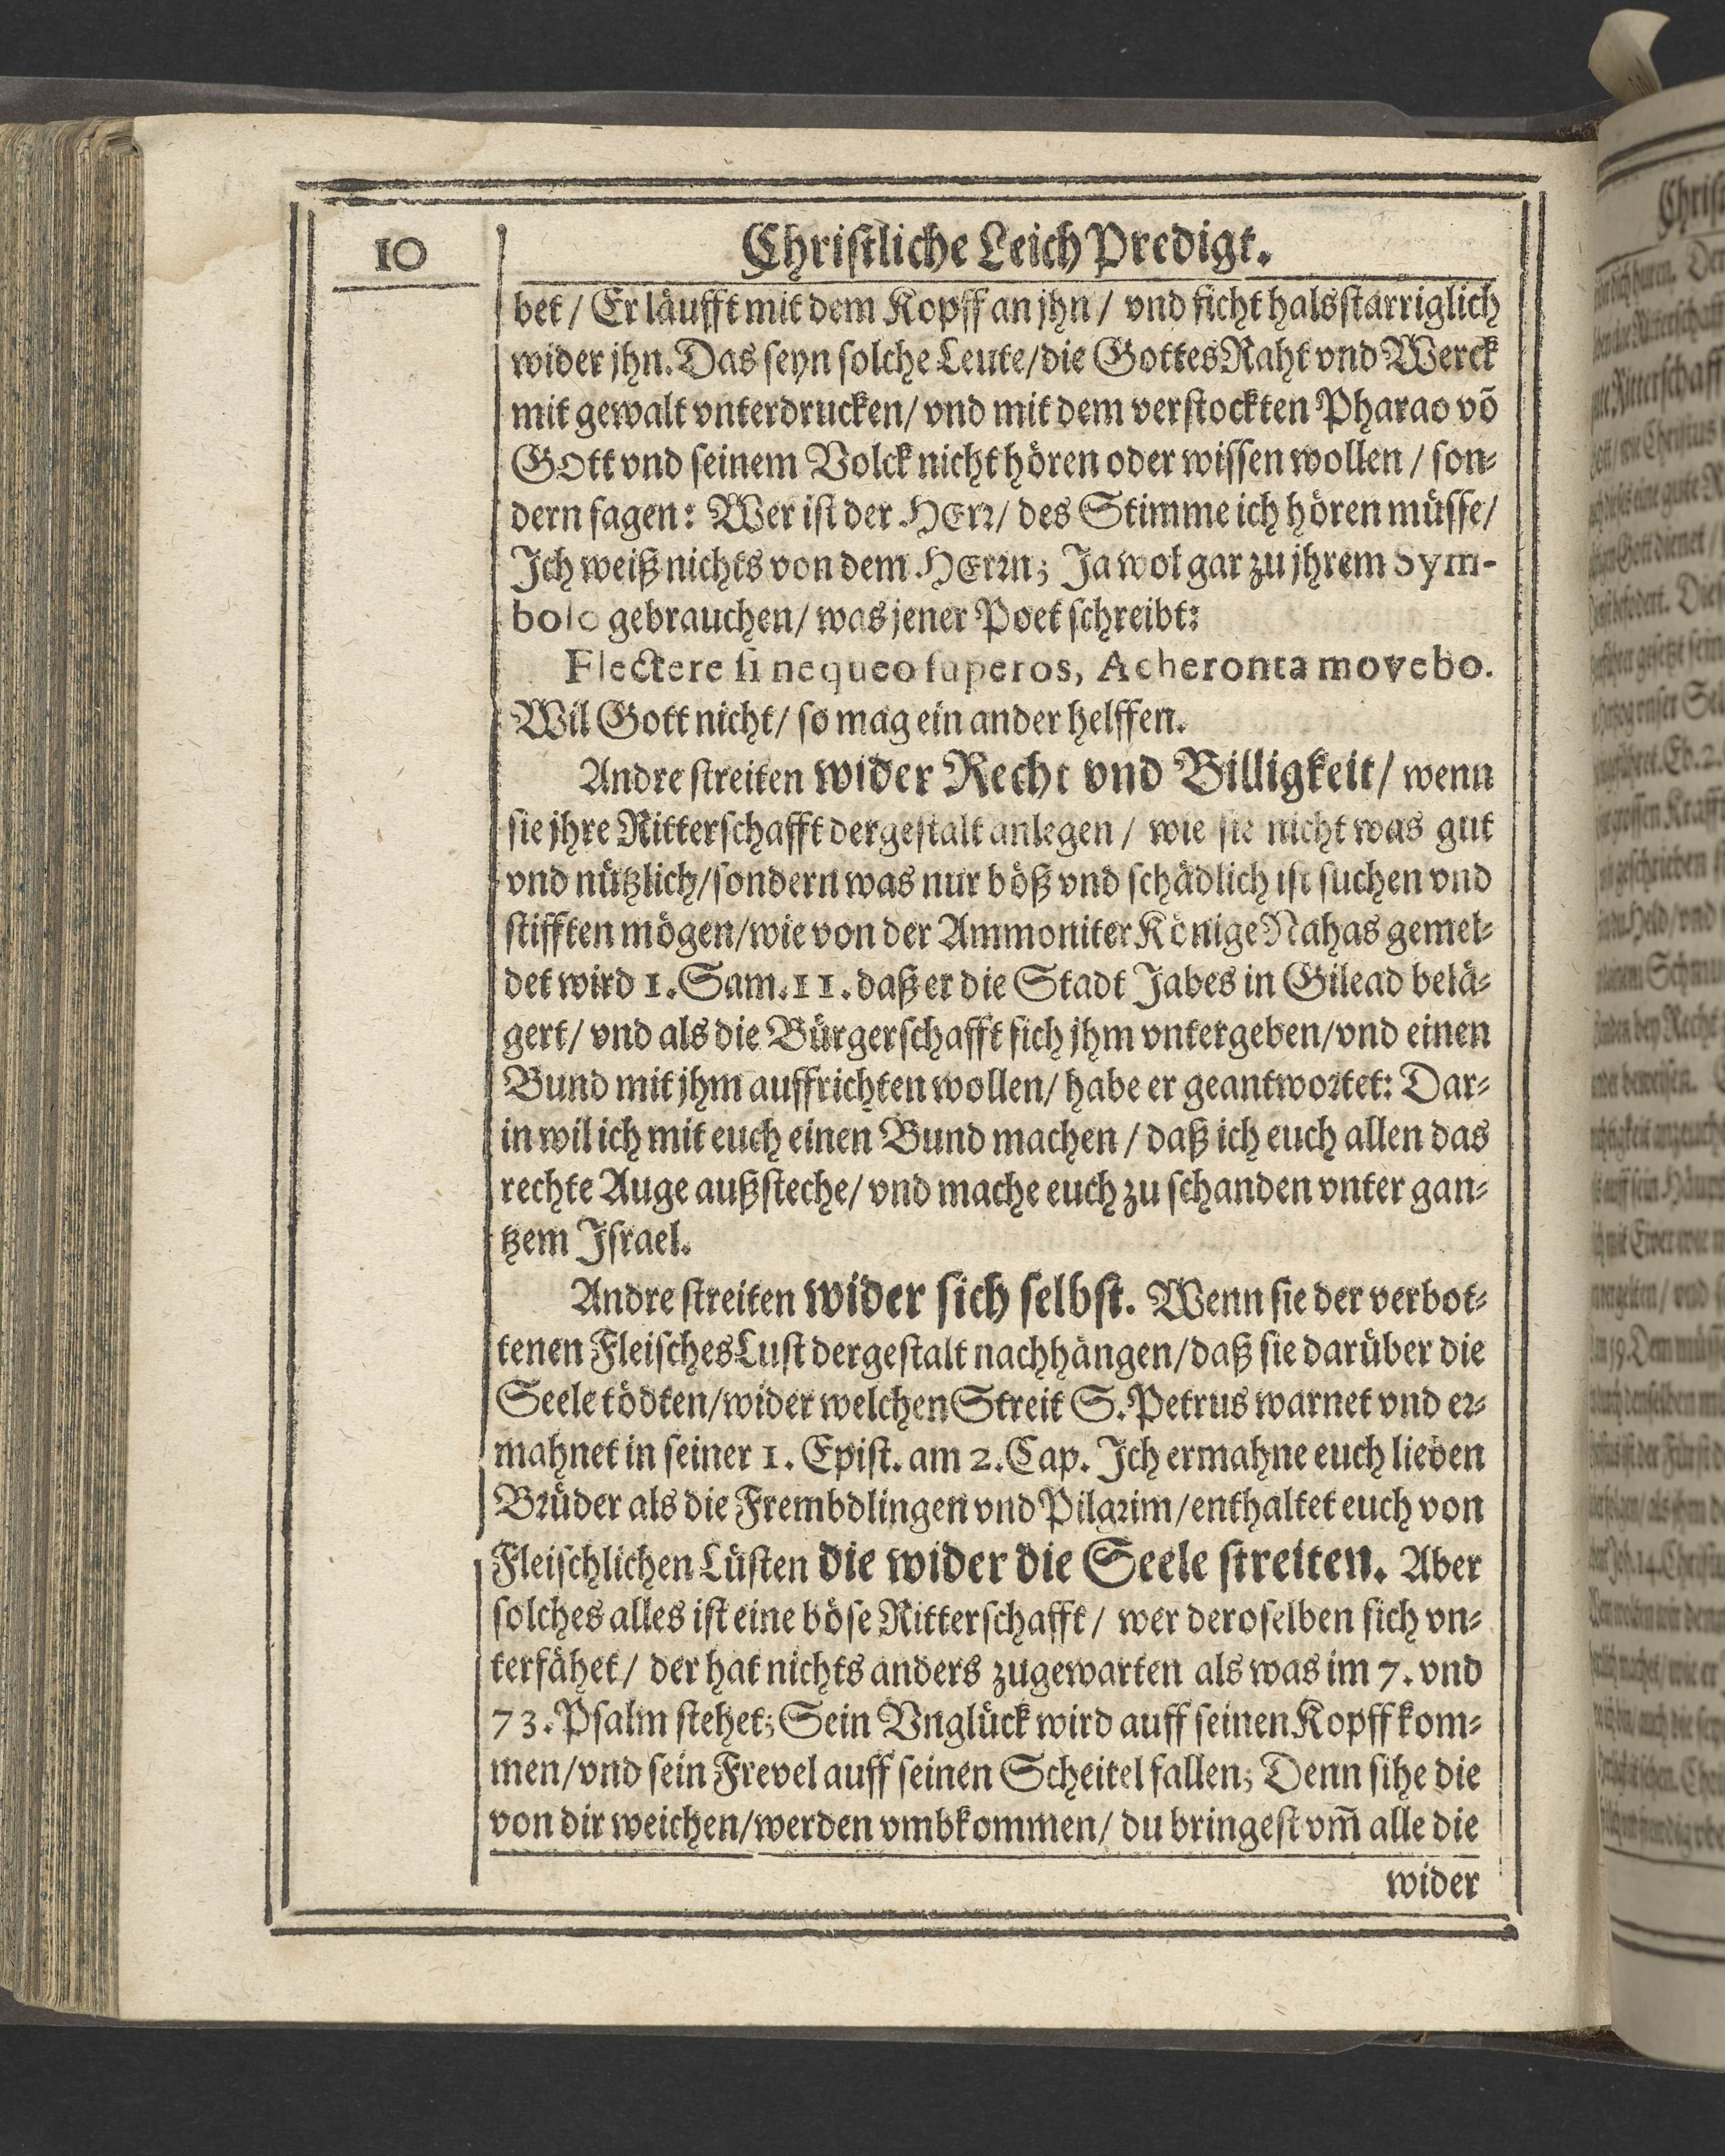 10
Christliche Leich Predigt.
bet / Er läufft mit dem Kopff an jhn / vnd ficht halsstarriglich
wider jhn. Das seyn solche Leute/die Gottes Raht vnd Werck
mit gewalt vnterdrucken/ vnd mit dem verstockten Pharao võ
GOtt vnd seinem Volck nicht hören oder wissen wollen / son-
dern sagen: Wer ist der HErr/ des Stimme ich hören müsse/
Ich weiß nichts von dem HErrn; Ja wol gar zu jhrem Sym-
bolo gebrauchen/ was jener Poet schreibt:
Flectere si nequeo superos, Acheronta movebo.
Wil Gott nicht/ so mag ein ander helffen.
Andre streiten wider Recht vnd Billigkeit/ wenn
sie jhre Ritterschafft dergestalt anlegen / wie sie nicht was gut
vnd nützlich/sondern was nur böß vnd schädlich ist suchen vnd
stifften mögen/wie von der Ammoniter Könige Nahas gemel-
det wird 1. Sam. 11. daß er die Stadt Jabes in Gilead belä-
gert/ vnd als die Bürgerschafft sich jhm vntergeben/vnd einen
Bund mit jhm auffrichten wollen/ habe er geantwortet: Dar-
in wil ich mit euch einen Bund machen / daß ich euch allen das
rechte Auge außsteche/ vnd mache euch zu schanden vnter gan-
tzem Israel.
Andre streiten wider sich selbst. Wenn sie der verbot-
tenen Fleisches Lust dergestalt nachhängen/daß sie darüber die
Seele tödten/wider welchen Streit S. Petrus warnet vnd er-
mahnet in seiner 1. Epist. am 2. Cap. Ich ermahne euch lieben
Brüder als die Frembdlingen vnd Pilgrim/enthaltet euch von
Fleischlichen Lüsten die wider die Seele streiten. Aber
solches alles ist eine böse Ritterschafft / wer deroselben sich vn-
terfähet/ der hat nichts anders zugewarten als was im 7. vnd
73. Psalm stehet; Sein Vnglück wird auff seinen Kopff kom-
men/vnd sein Frevel auff seinen Scheitel fallen; Denn sihe die
von dir weichen/werden vmbkommen/ du bringest vm̃ alle die
wider